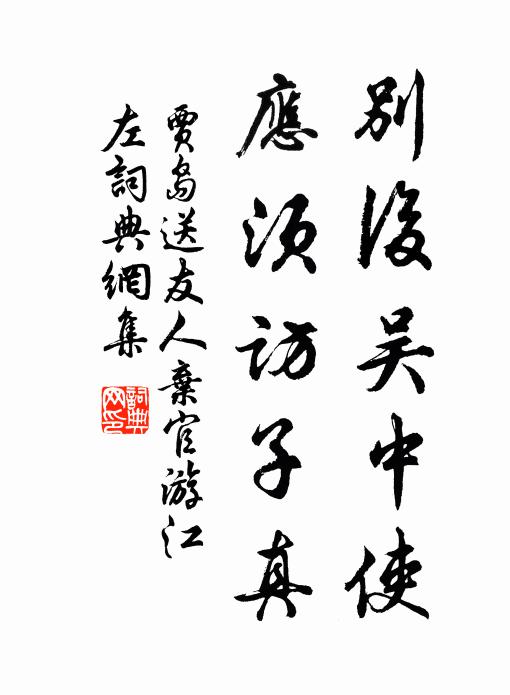 別後吴中使
應須訪子真
賈島送友人棄官游江
左詞典網集
詞典
网印